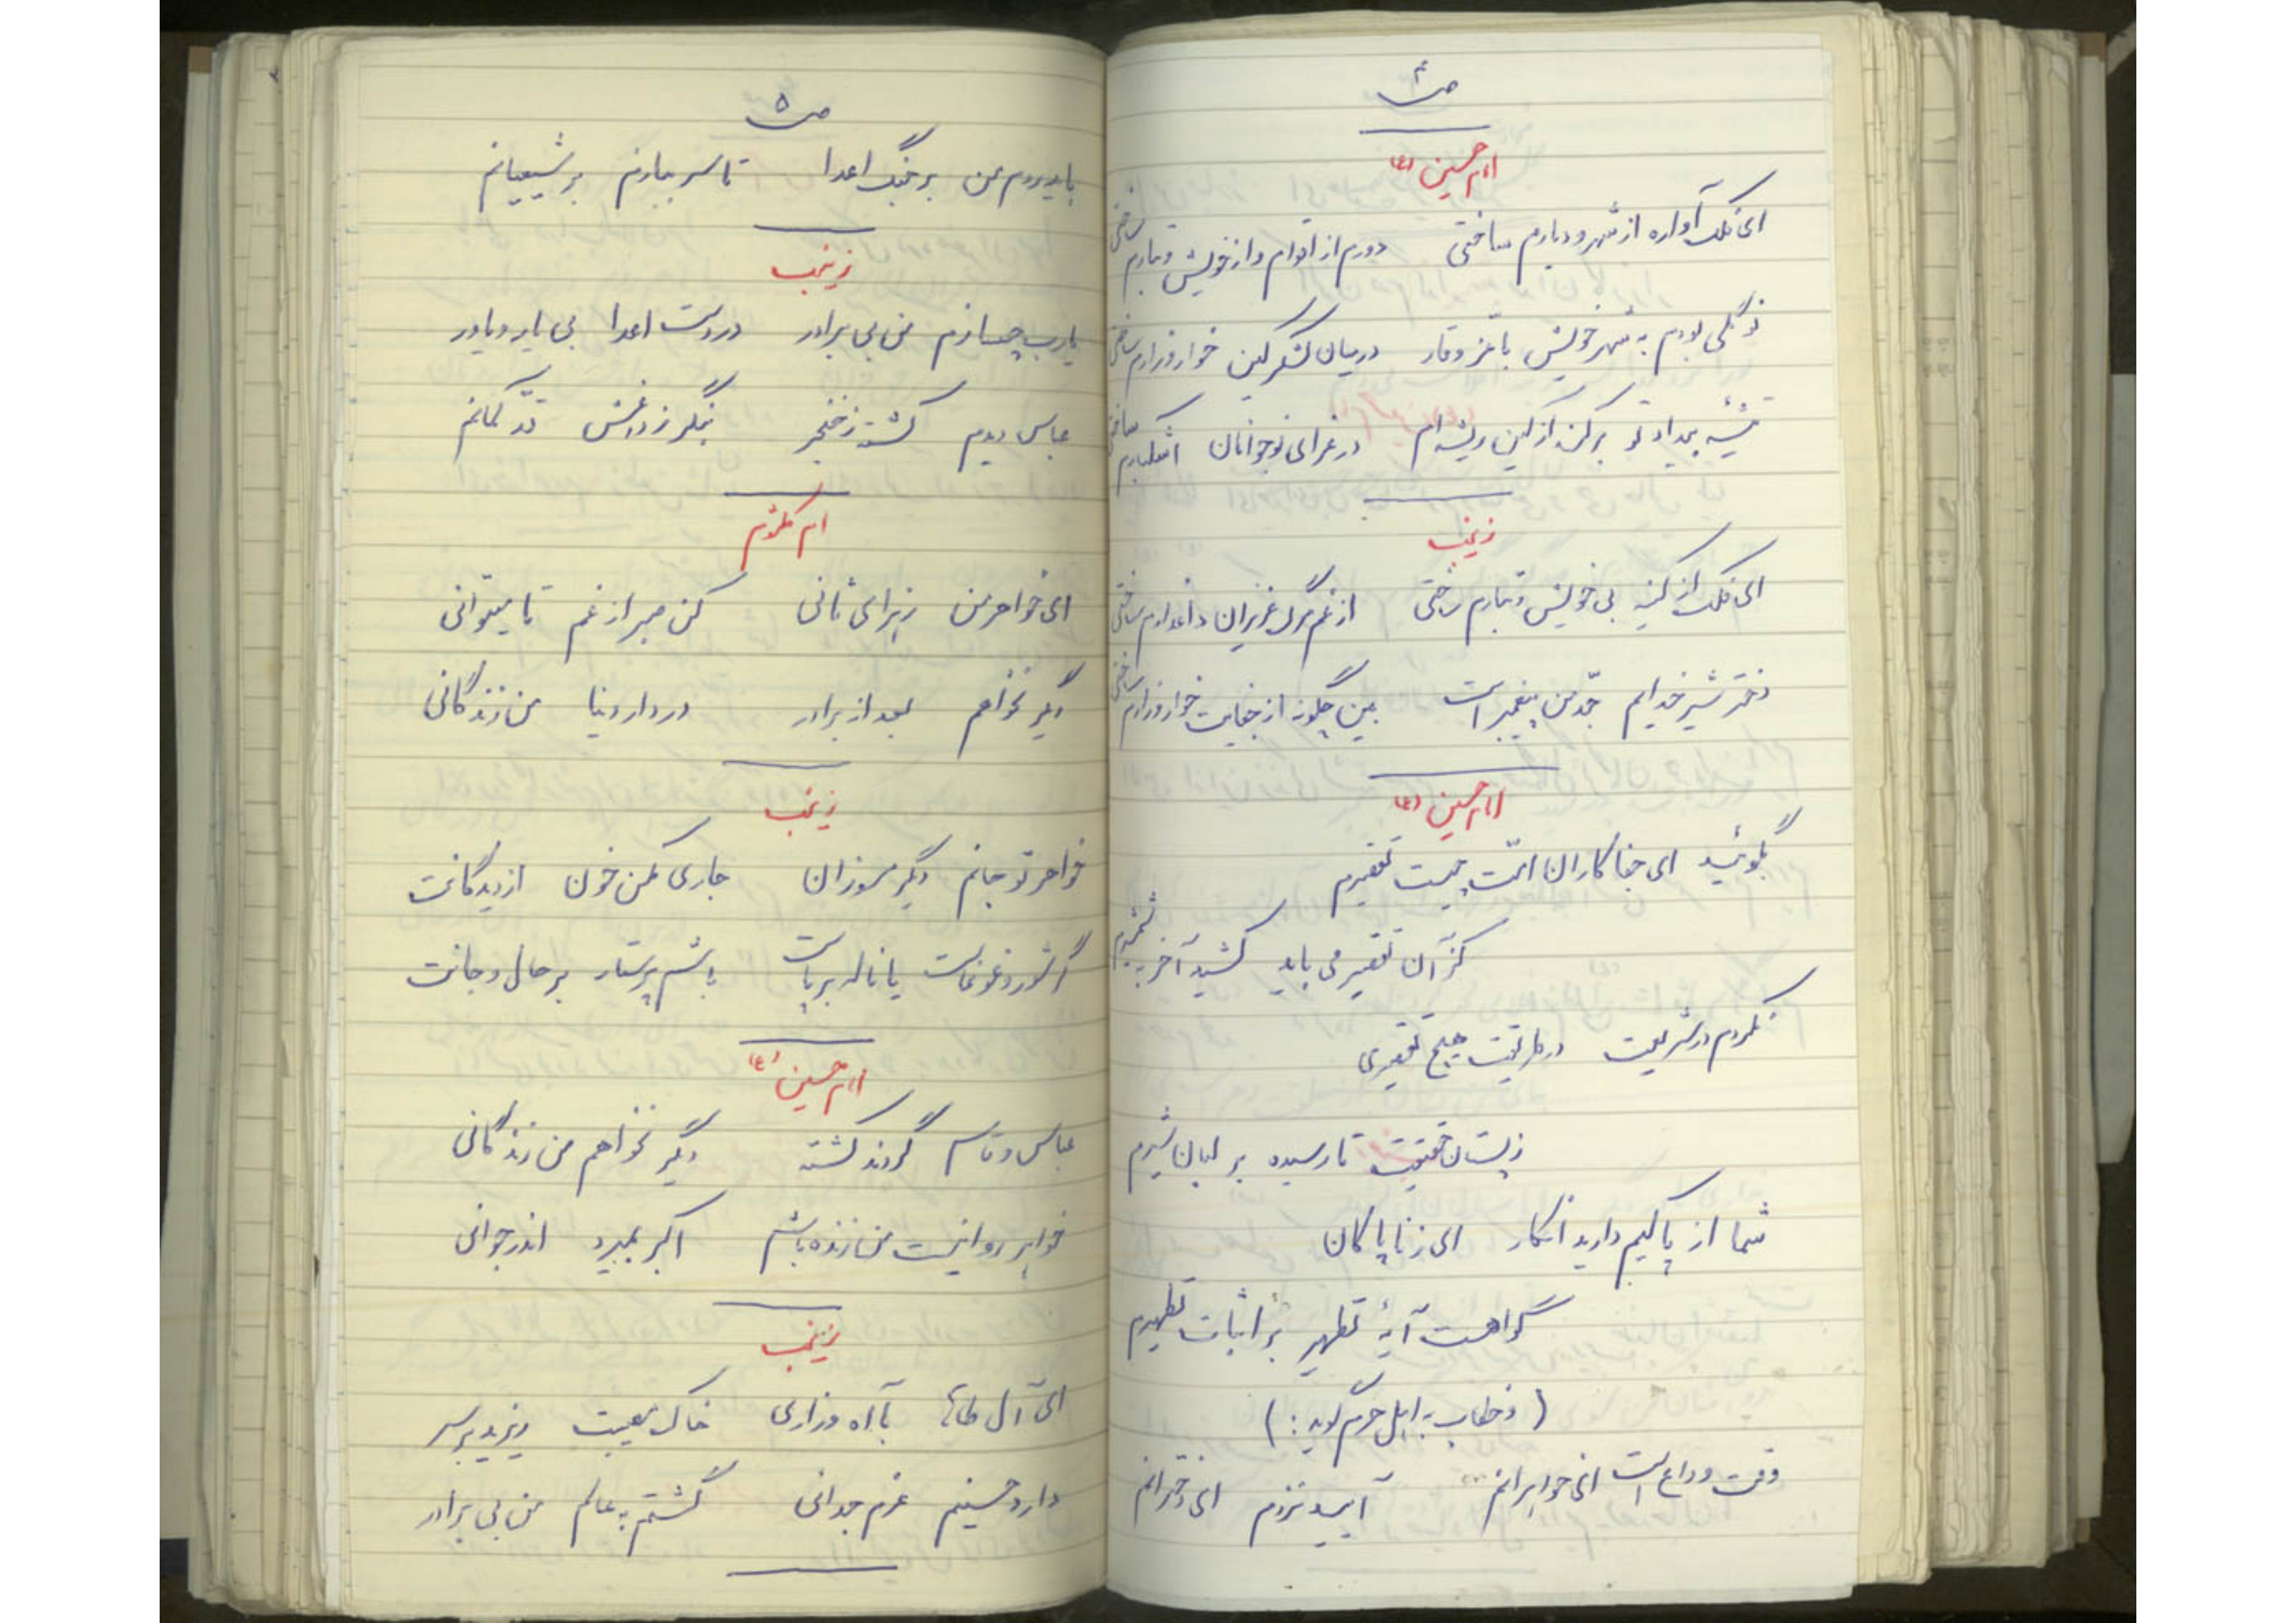 ص ۴
امام حسین (ع)
ای فلک آواره از شهر و دیارم ساختی دورم از اقوام و از خویش و تبارم ساختی
بودم به شهر خویش با عز و وقار در میان لشکر کین خوار و زارم ساختی
تیشهٔ بیداد تو برکند از کین ریشه ام در عزای نوجوانان اشکبارم ساختی
زینب
ای فلک از کینه بی خویش و تبارم ساختی از غم مرگ عزیزان داغدارم ساختی
دختر شیر خدایم جدّ من پیغمبر است ببین چگونه از جفایت خوار و زارم ساختی
امام حسین (ع)
بگوئید ای جفاکاران امّت چیست تقصیرم
کز آن تقصیر می باید کشید آخر به شمشیرم
نکردم در شریعت در طریقت هیچ تقصیری
ز پستان حقیقت تا رسیده بر لبان شیرم
شما از پاکیم دارید انکار ای زنا پاکان
گواهست آیهٔ تطهیر بر اثبات تطهیرم
(و خطاب به اهل حرم گوید:)
وقت وداع است ای خواهرانم آیید نزدم ای دخترانم
ص ۵
باید روم من بر جنگ اعدا تا سر ببازم بر شیعیانم
زینب
یارب چسازم من بی برادر در دست اعدا بی یار و یاور
عباس دیدم کشته ز خنجر بنگر ز داغش قدّ کمانم
ام کلثوم
ای خواهر من زهرای ثانی کن صبر از غم تا میتوانی
دیگر نخواهم بعد از برادر در دار دنیا من زندگانی
زینب
خواهر تو جانم دیگر مسوزان جاری مکن خون از دیدگانت
گر شور و غوغاست یا ناله برپاست باشم پرستار بر حال و جانت
امام حسین (ع)
عباس و قاسم گردند کشته دیگر نخواهم من زندگانی
خواهر روا نیست من زنده باشم اکبر بمیرد اندر جوانی
زینب
ای آل طاها با آه و زاری خاک مصیبت ریزید بر سر
دارد حسینم عزم جدائی گشتم به عالم من بی برادر